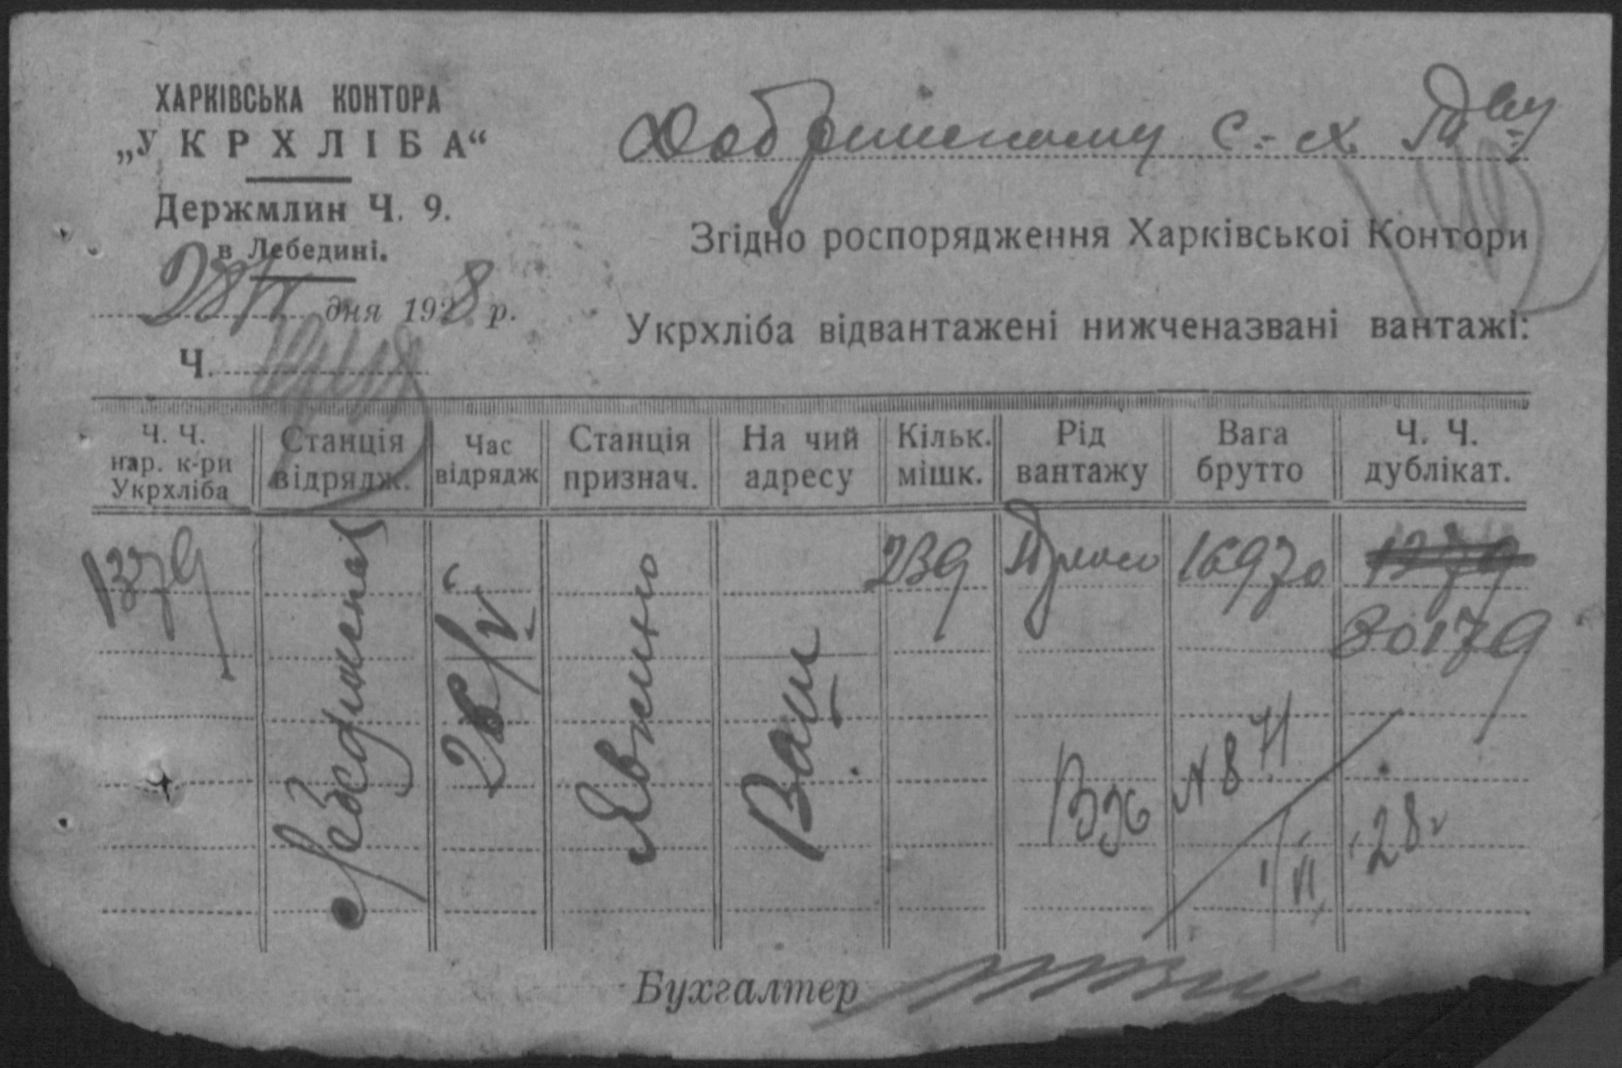 ХАРКІВСЬКА КОНТОРА
„УКРХЛІБА“
Держмлин Ч. 9.
в Лебедині.
28/V дня 1928 р.
Ч.
с.-х. Т-ву
Згідно роспорядження Харківськоі Контори
Укрхліба відвантажені нижченазвані вантажі:
Ч. Ч. нар. к-ри Укрхліба | Станція відрядж. | Час відрядж | Станція признач. | На чий адресу | Кільк. мішк. | Рід вантажу | Вага брутто | Ч. Ч. дублікат.
1379 | Лебединська | 28/V | Явкино | Ваш | 239 | Просо | 16970 | 1379
30179
Вх №871
1/VI 28г
Бухгалтер